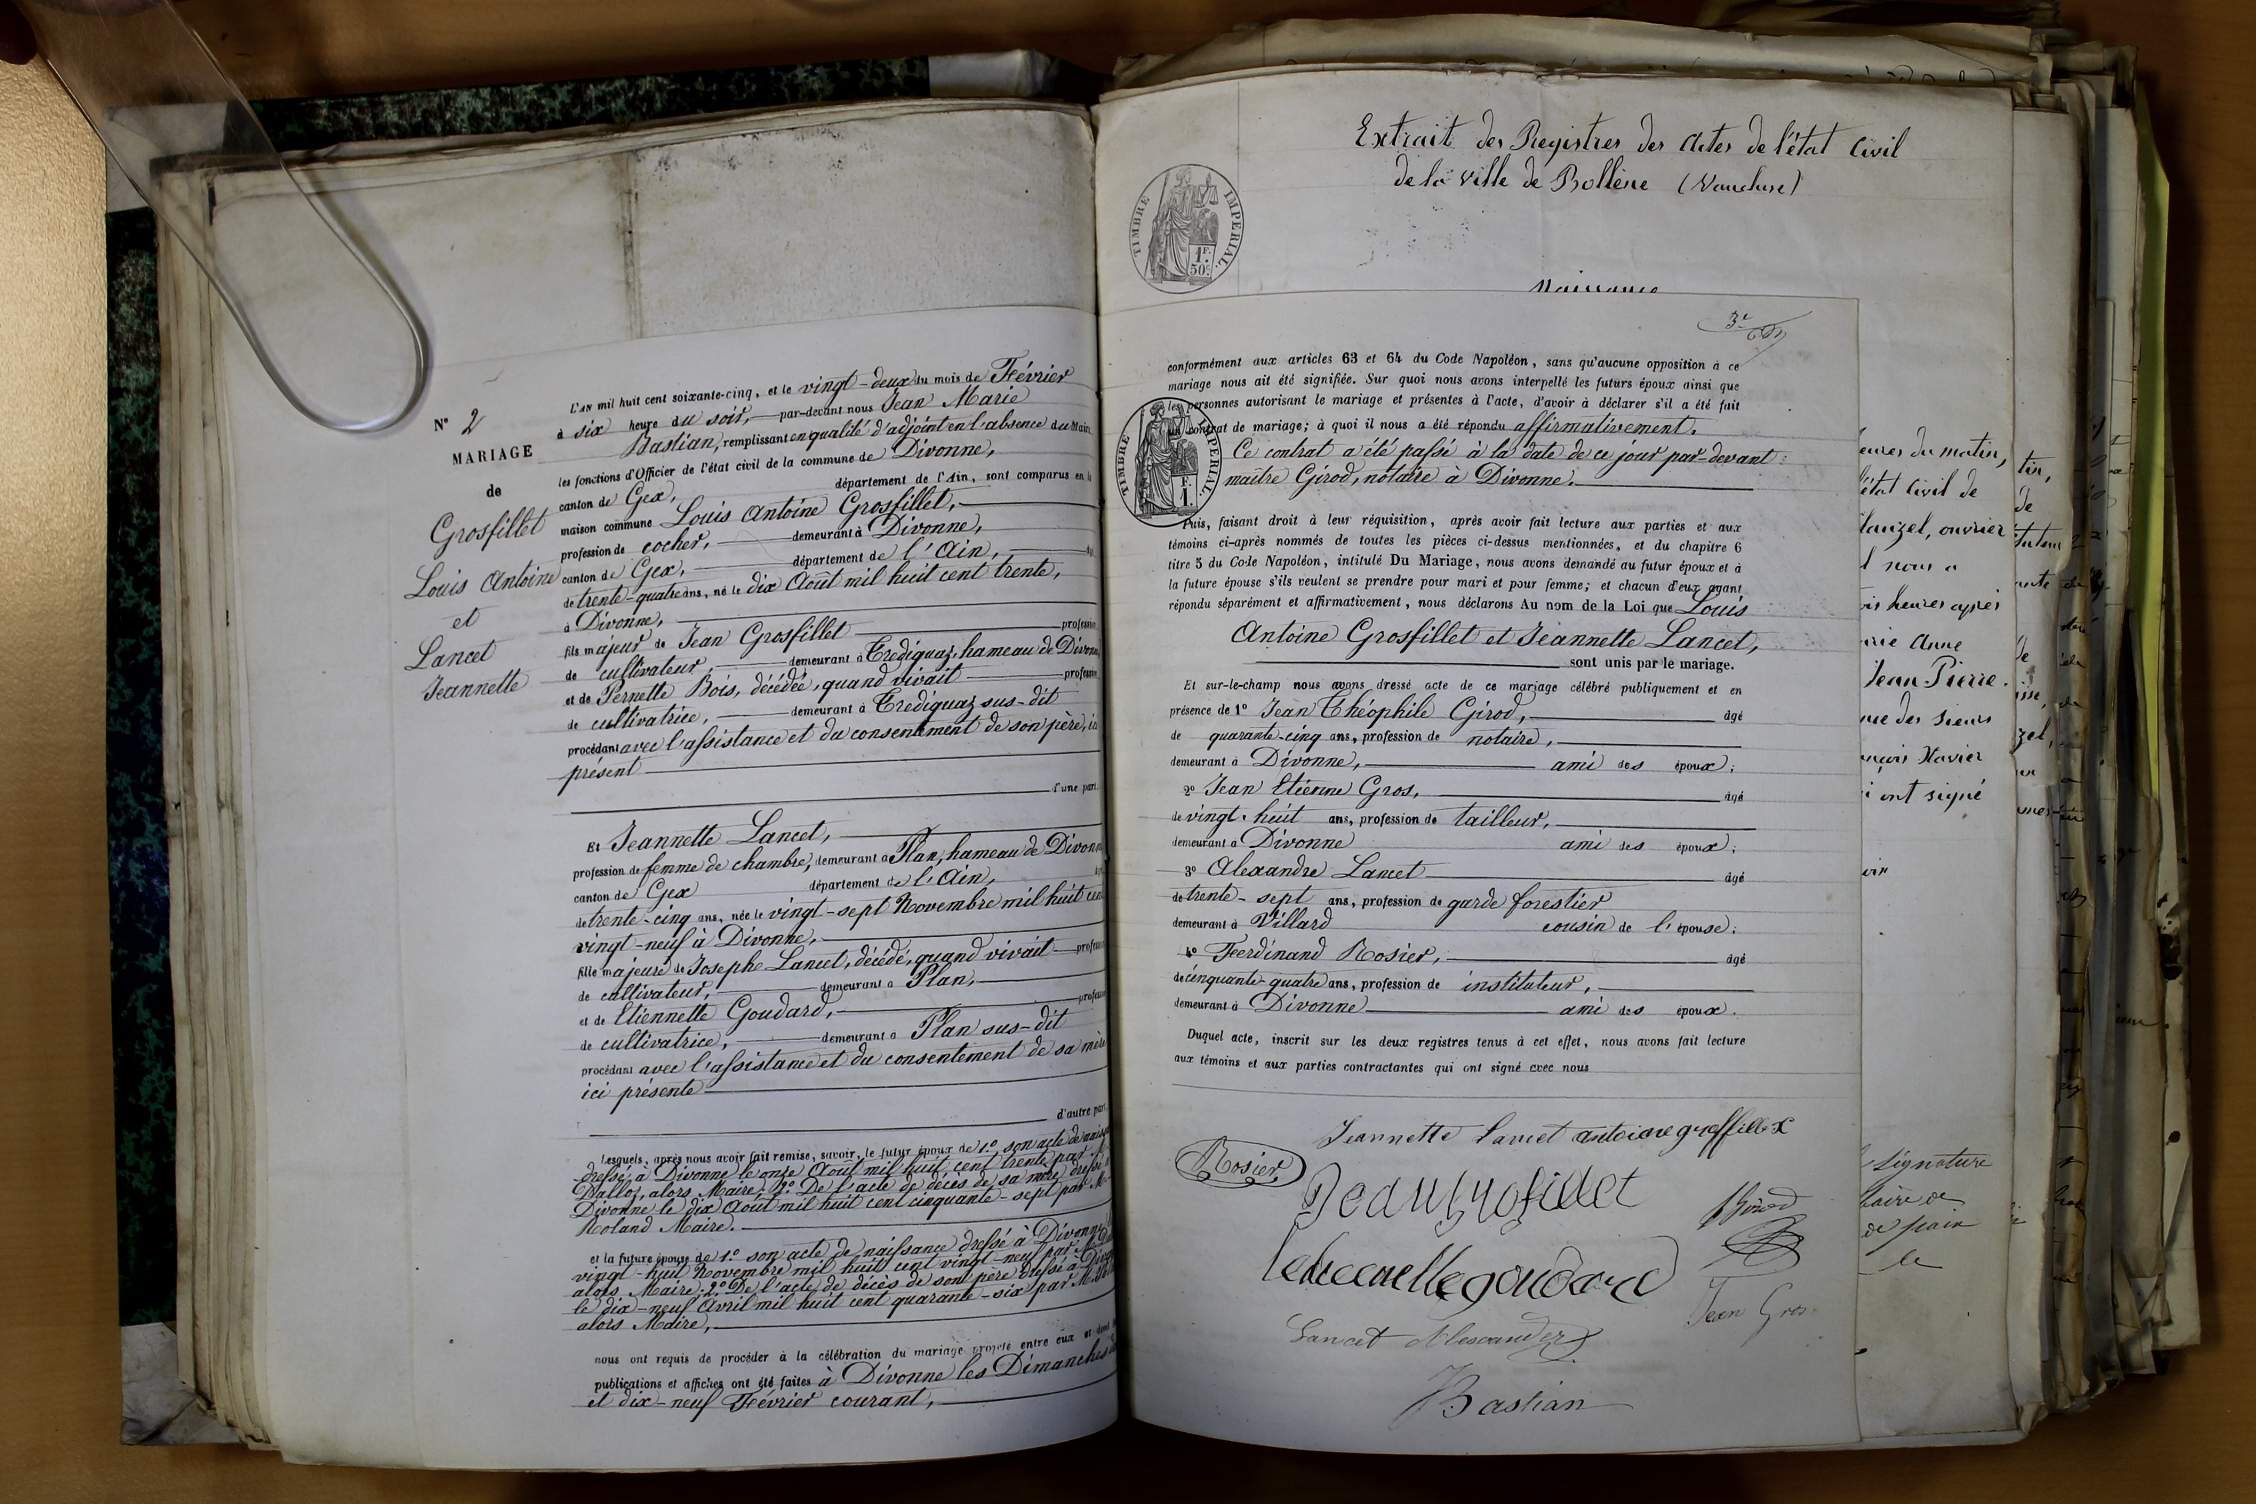 N° 2
MARIAGE
de
Grosfillet
Louis Antoine
et
Lancet
Jeannette
L'AN mil huit cent soixante-cinq, et le vingt-deux du mois de Février
à six heure du soir, par-devant nous Jean Marie
Bastian, remplissant en qualité d'adjoint en l'absence du Maire
les fonctions d'Officier de l'état civil de la commune de Divonne,
canton de Gex, département de l'Ain, sont comparus en la
maison commune Louis Antoine Grosfillet,
profession de cocher, demeurant à Divonne,
canton de Gex, département de l'Ain,
de trente-quatre ans, né le dix Août mil huit cent trente,
à Divonne,
fils majeur de Jean Grosfillet profession
de cultivateur, demeurant à hameau de Divonne
et de Pernette Bois, décédée, quand vivait profession
de cultivatrice, demeurant à sus-dit
procédant avec l'assistance et du consentement de son père, ici
présent
d'une part.
Et Jeannette Lancet,
profession de femme de chambre, demeurant à Plan, hameau de Divonne
canton de Gex département de l'Ain,
de trente-cinq ans, née le vingt-sept Novembre mil huit cent
vingt-neuf à Divonne,
fille majeure de Josephe Lancet, décédé, quand vivait profession
de cultivateur, demeurant à Plan,
et de Etiennette Goudard, profession
de cultivatrice, demeurant à Plan sus-dit
procédant avec l'assistance et du consentement de sa mère
ici présente
d'autre part.
Lesquels, après nous avoir fait remise, savoir, le futur époux de 1° son acte de
dressé à Divonne le onze Août mil huit cent trente par
Dalloz, alors Maire; 2° De l'acte de décès de sa mère dressé
Divonne le dix Août mil huit cent cinquante-sept par M
Roland Maire.
et la future épouse de 1° son acte de naissance dressé à Divonne
vingt-huit Novembre mil huit cent vingt-neuf par
alors Maire; 2° De l'acte de décès de son père dressé à
le dix-neuf Avril mil huit cent quarante-six par M.
alors Maire,
nous ont requis de procéder à la célébration du mariage projeté entre eux et dont
publications et affiches ont été faites à Divonne les Dimanches
et dix-neuf Février courant,
Extrait des Registres des Actes de l'état Civil
de la ville de Bollène (Vaucluse)
TIMBRE IMPERIAL.
1F. 50c.
Naissance
3e
conformément aux articles 63 et 64 du Code Napoléon, sans qu'aucune opposition à ce
mariage nous ait été signifiée. Sur quoi nous avons interpellé les futurs époux ainsi que
les personnes autorisant le mariage et présentes à l'acte, d'avoir à déclarer s'il a été fait
un contrat de mariage; à quoi il nous a été répondu affirmativement.
Ce contrat a été passé à la date de ce jour par-devant
maître Girod, notaire à Divonne.
TIMBRE IMPERIAL.
1 F.
Puis, faisant droit à leur réquisition, après avoir fait lecture aux parties et aux
témoins ci-après nommés de toutes les pièces ci-dessus mentionnées, et du chapitre 6
titre 5 du Code Napoléon, intitulé Du Mariage, nous avons demandé au futur époux et à
la future épouse s'ils veulent se prendre pour mari et pour femme; et chacun d'eux ayant
répondu séparément et affirmativement, nous déclarons Au nom de la Loi que Louis
Antoine Grosfillet et Jeannette Lancet,
sont unis par le mariage.
Et sur-le-champ nous avons dressé acte de ce mariage célébré publiquement et en
présence de 1° Jean Théophile Girod, âgé
de quarante-cinq ans, profession de notaire,
demeurant à Divonne, ami des époux;
2° Jean Etienne Gros, âgé
de vingt-huit ans, profession de tailleur,
demeurant à Divonne ami des époux;
3° Alexandre Lancet âgé
de trente-sept ans, profession de garde forestier
demeurant à Villard cousin de l'épouse;
4° Ferdinand Rosier, âgé
de cinquante-quatre ans, profession de instituteur,
demeurant à Divonne ami des époux.
Duquel acte, inscrit sur les deux registres tenus à cet effet, nous avons fait lecture
aux témoins et aux parties contractantes qui ont signé avec nous
Jeannette Lancet antoine groffillex
Rosier
Jean Grofillet
Girod
goudard
Jean Gros
Lancet Alexandre
Bastian
heures du matin,
l'état Civil de
ouvrier
nous a
heures après
Anne
Jean Pierre.
des sieurs
Xavier
ont signé
signature